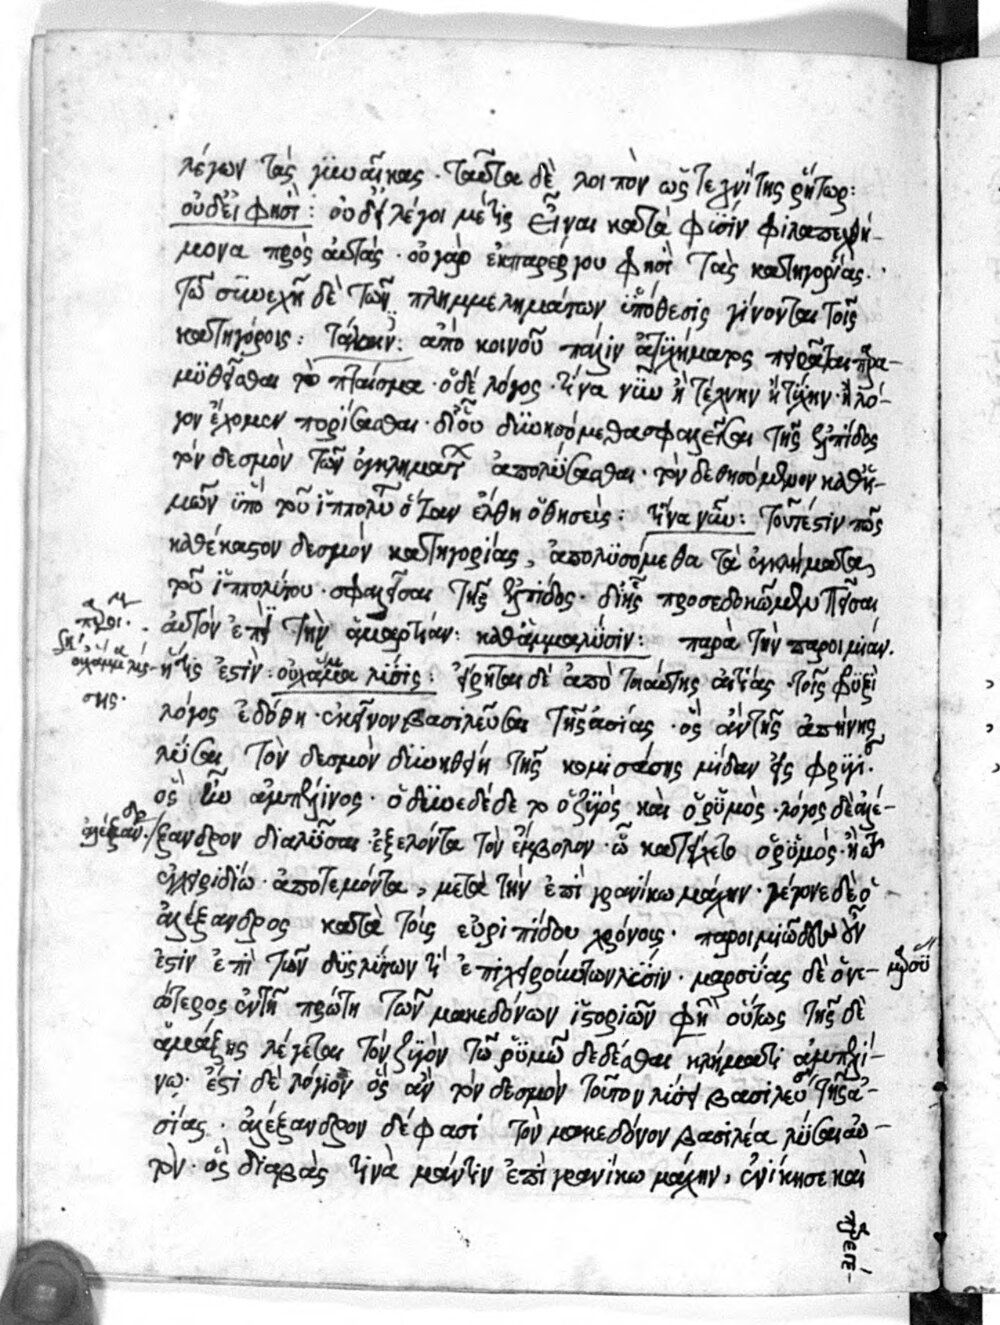 λέγων τὰς γυναῖκας · ταῦτα δὲ λοιπὸν ὡς τεχνίτης ῥήτωρ:
οὐδεὶ φησὶ: οὐδὲ λέγοι μέ τις εἶναι κατὰ φύσιν φιλαπεχθή-
μονα πρὸς αὐτάς · οὐ γὰρ ἐκ παρέργου φησὶ τὰς κατηγορίας ·
τῶ συνεχῆ δὲ τῶν πλημμελημάτων ὑπόθεσις γίνονται τοῖς
κατηγόροις: τάλαιν: ἀπὸ κοινοῦ πάλιν ἀτυχήματος πειρᾶται παρα-
μυθεῖσθαι τὸ πταῖσμα · ὁ δὲ λόγος · τίνα νῦν ἢ τέχνην ἢ τύχην · ἢ λό-
γον ἔχομεν πορίσασθαι · δι' οὗ δυνησόμεθα σφαλεῖσαι τῆς ἐλπίδος
τὸν δεσμὸν τῶν ἐγκλημάτων ἀπολύσασθαι · τὸν δεθησόμενον καθ' ἡ-
μῶν ὑπὸ τοῦ ἱππολύτου ὅταν ἔλθη ὁ θησεύς: τίνα νῦν: τουτέστιν πῶς
καθέκαστον δεσμὸν κατηγορίας, ἀπολυσόμεθα τὰ ἐγκλήματα
τοῦ ἱππολύτου · σφαλεῖσαι τῆς ἐλπίδος · δι' ἧς προσεδοκῶμεν πεῖσαι
αὐτὸν ἐπὶ τὴν ἁμαρτίαν: καθάμμα λύσιν: παρὰ τὴν παροιμίαν.
ἥτις ἐστίν: οὐχ ἅμμα λύσις: εἴρηται δὲ ἀπὸ τοιαύτης αἰτίας · τοῖς φρυξὶ
λόγος ἐδόθη · ἐκεῖνον βασιλεῦσαι τῆς ἀσίας · ὃς ἂν τῆς ἀπήνης
λῦσαι τὸν δεσμὸν δυνηθείη τῆς κομισάσης μίδαν εἰς φρυγί.
ὃς ἦν ἀμπέλινος · ὁ δὲ συνεδέδετο ὁ ζυγὸς καὶ ὁ ῥυμός · λόγος δὲ ἀλέ-
ξανδρον διαλῦσαι · ἐξελόντα τὸν ἔμβολον · ὧ κατείχετο ὁ ῥυμός · ἢ τῶ
ἐγχειριδίω · ἀποτεμόντα, μετὰ τὴν ἐπὶ γρανίκω μάχην · γέγονε δὲ ὁ
ἀλέξανδρος κατὰ τοὺς εὐριπίδου χρόνους · παροιμιῶδες οὖν
ἐστὶν ἐπὶ τῶν δυσλύτων τι ἐπιχειρούντων λύσιν · μαρσύας δὲ ὁ νε-
ώτερος ἐν τῆ πρώτη τῶν μακεδόνων ἱστοριῶν φησὶν οὕτως τῆς δὲ
ἁμάξης λέγεται τὸν ζυγὸν τῶ ῥυμῶ δεδέσθαι κλήματι ἀμπελί-
νω · ἐστὶ δὲ λόγιον ὃς ἂν τὸν δεσμὸν τοῦτον λύσει βασιλεύσει τῆς ἀ-
σίας · ἀλέξανδρον δέ φασι τὸν μακεδόνον βασιλέα λῦσαι αὐ-
τόν · ὃς διαβὰς τινὰ μάντιν ἐπὶ γρανίκω μάχην, ἐνίκησε καὶ